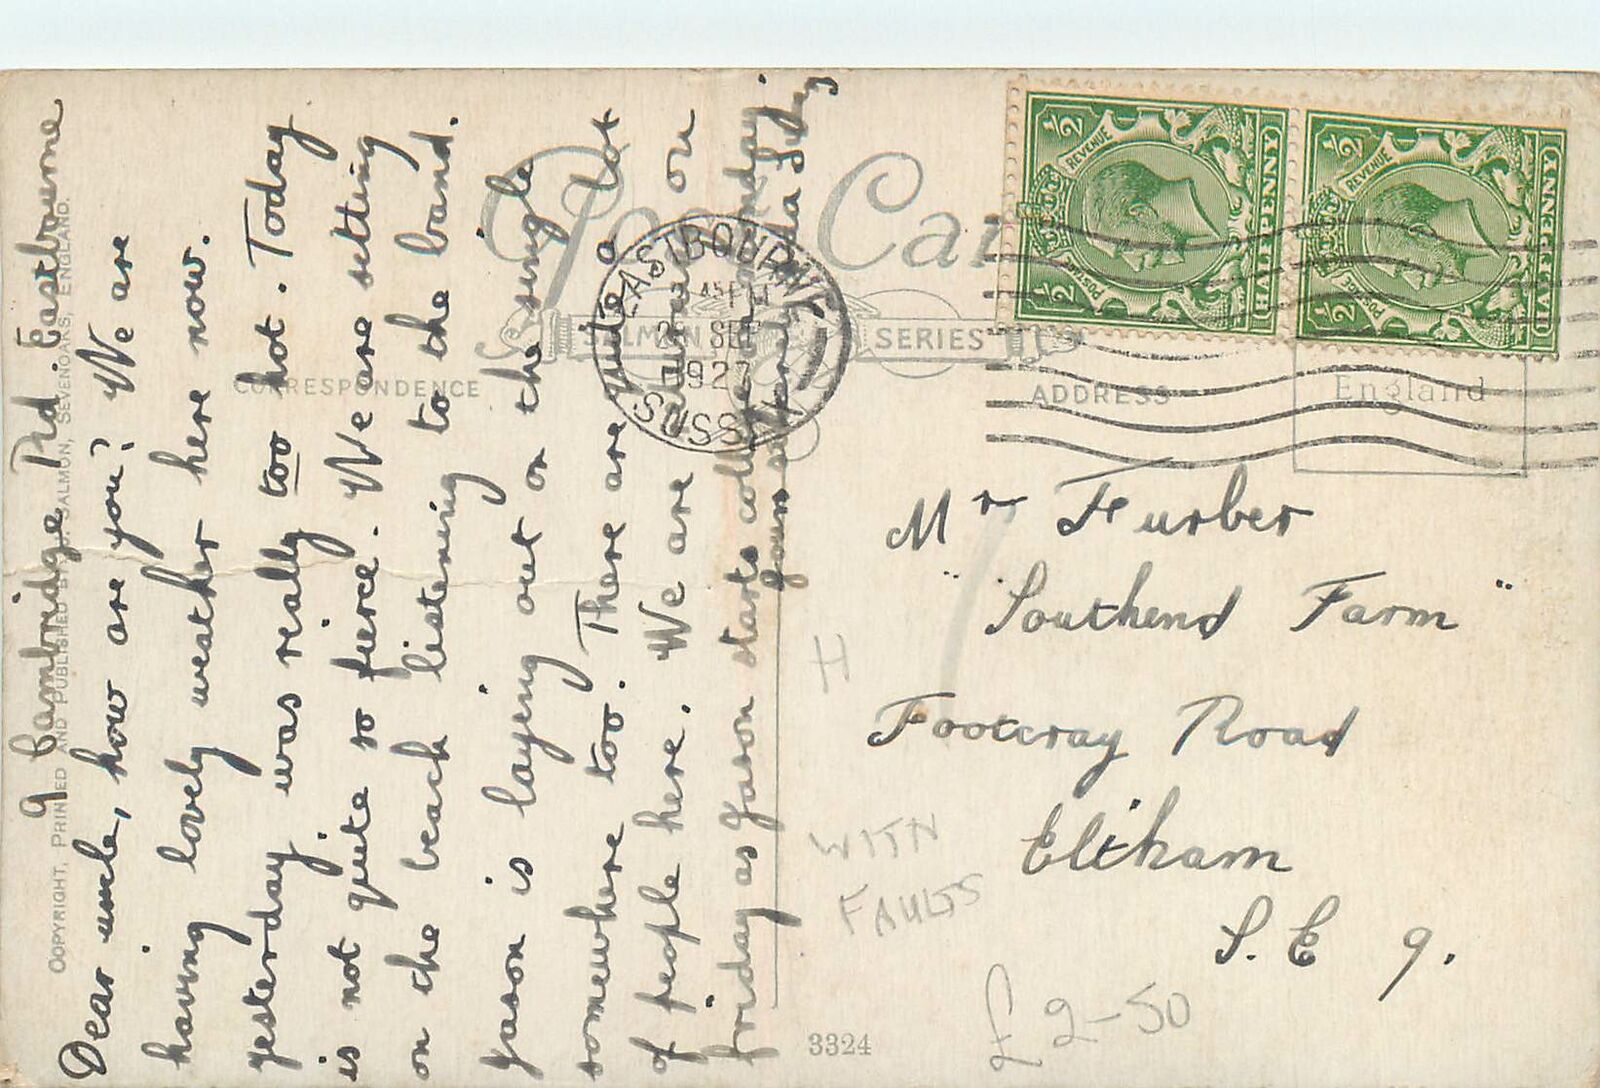 9 Cambridge Rd. Eastbourne
Dear uncle, how are you? We are
having lovely weather here now.
yesterday was really too hot. Today
is not quite so fierce. We are sitting
on the beach listening to the band.
Jason is laying out on the single
somewhere too. There are quite a lot
of people here. We are returning on
friday as Jason starts college on monday.
yours
COPYRIGHT, PRINTED AND PUBLISHED BY J. SALMON, SEVENOAKS, ENGLAND.
Post Card
SALMON SERIES
CORRESPONDENCE
ADDRESS
England
EASTBOURNE
45 PM
SEP
192
SUSSEX
POSTAGE REVENUE
½ ½
HALFPENNY
POSTAGE REVENUE
½ ½
HALFPENNY
Mr Furber
"Southend Farm"
Footcray Road
Eltham
S. E 9.
H
WITH
FAULTS
£ 2-50
3324